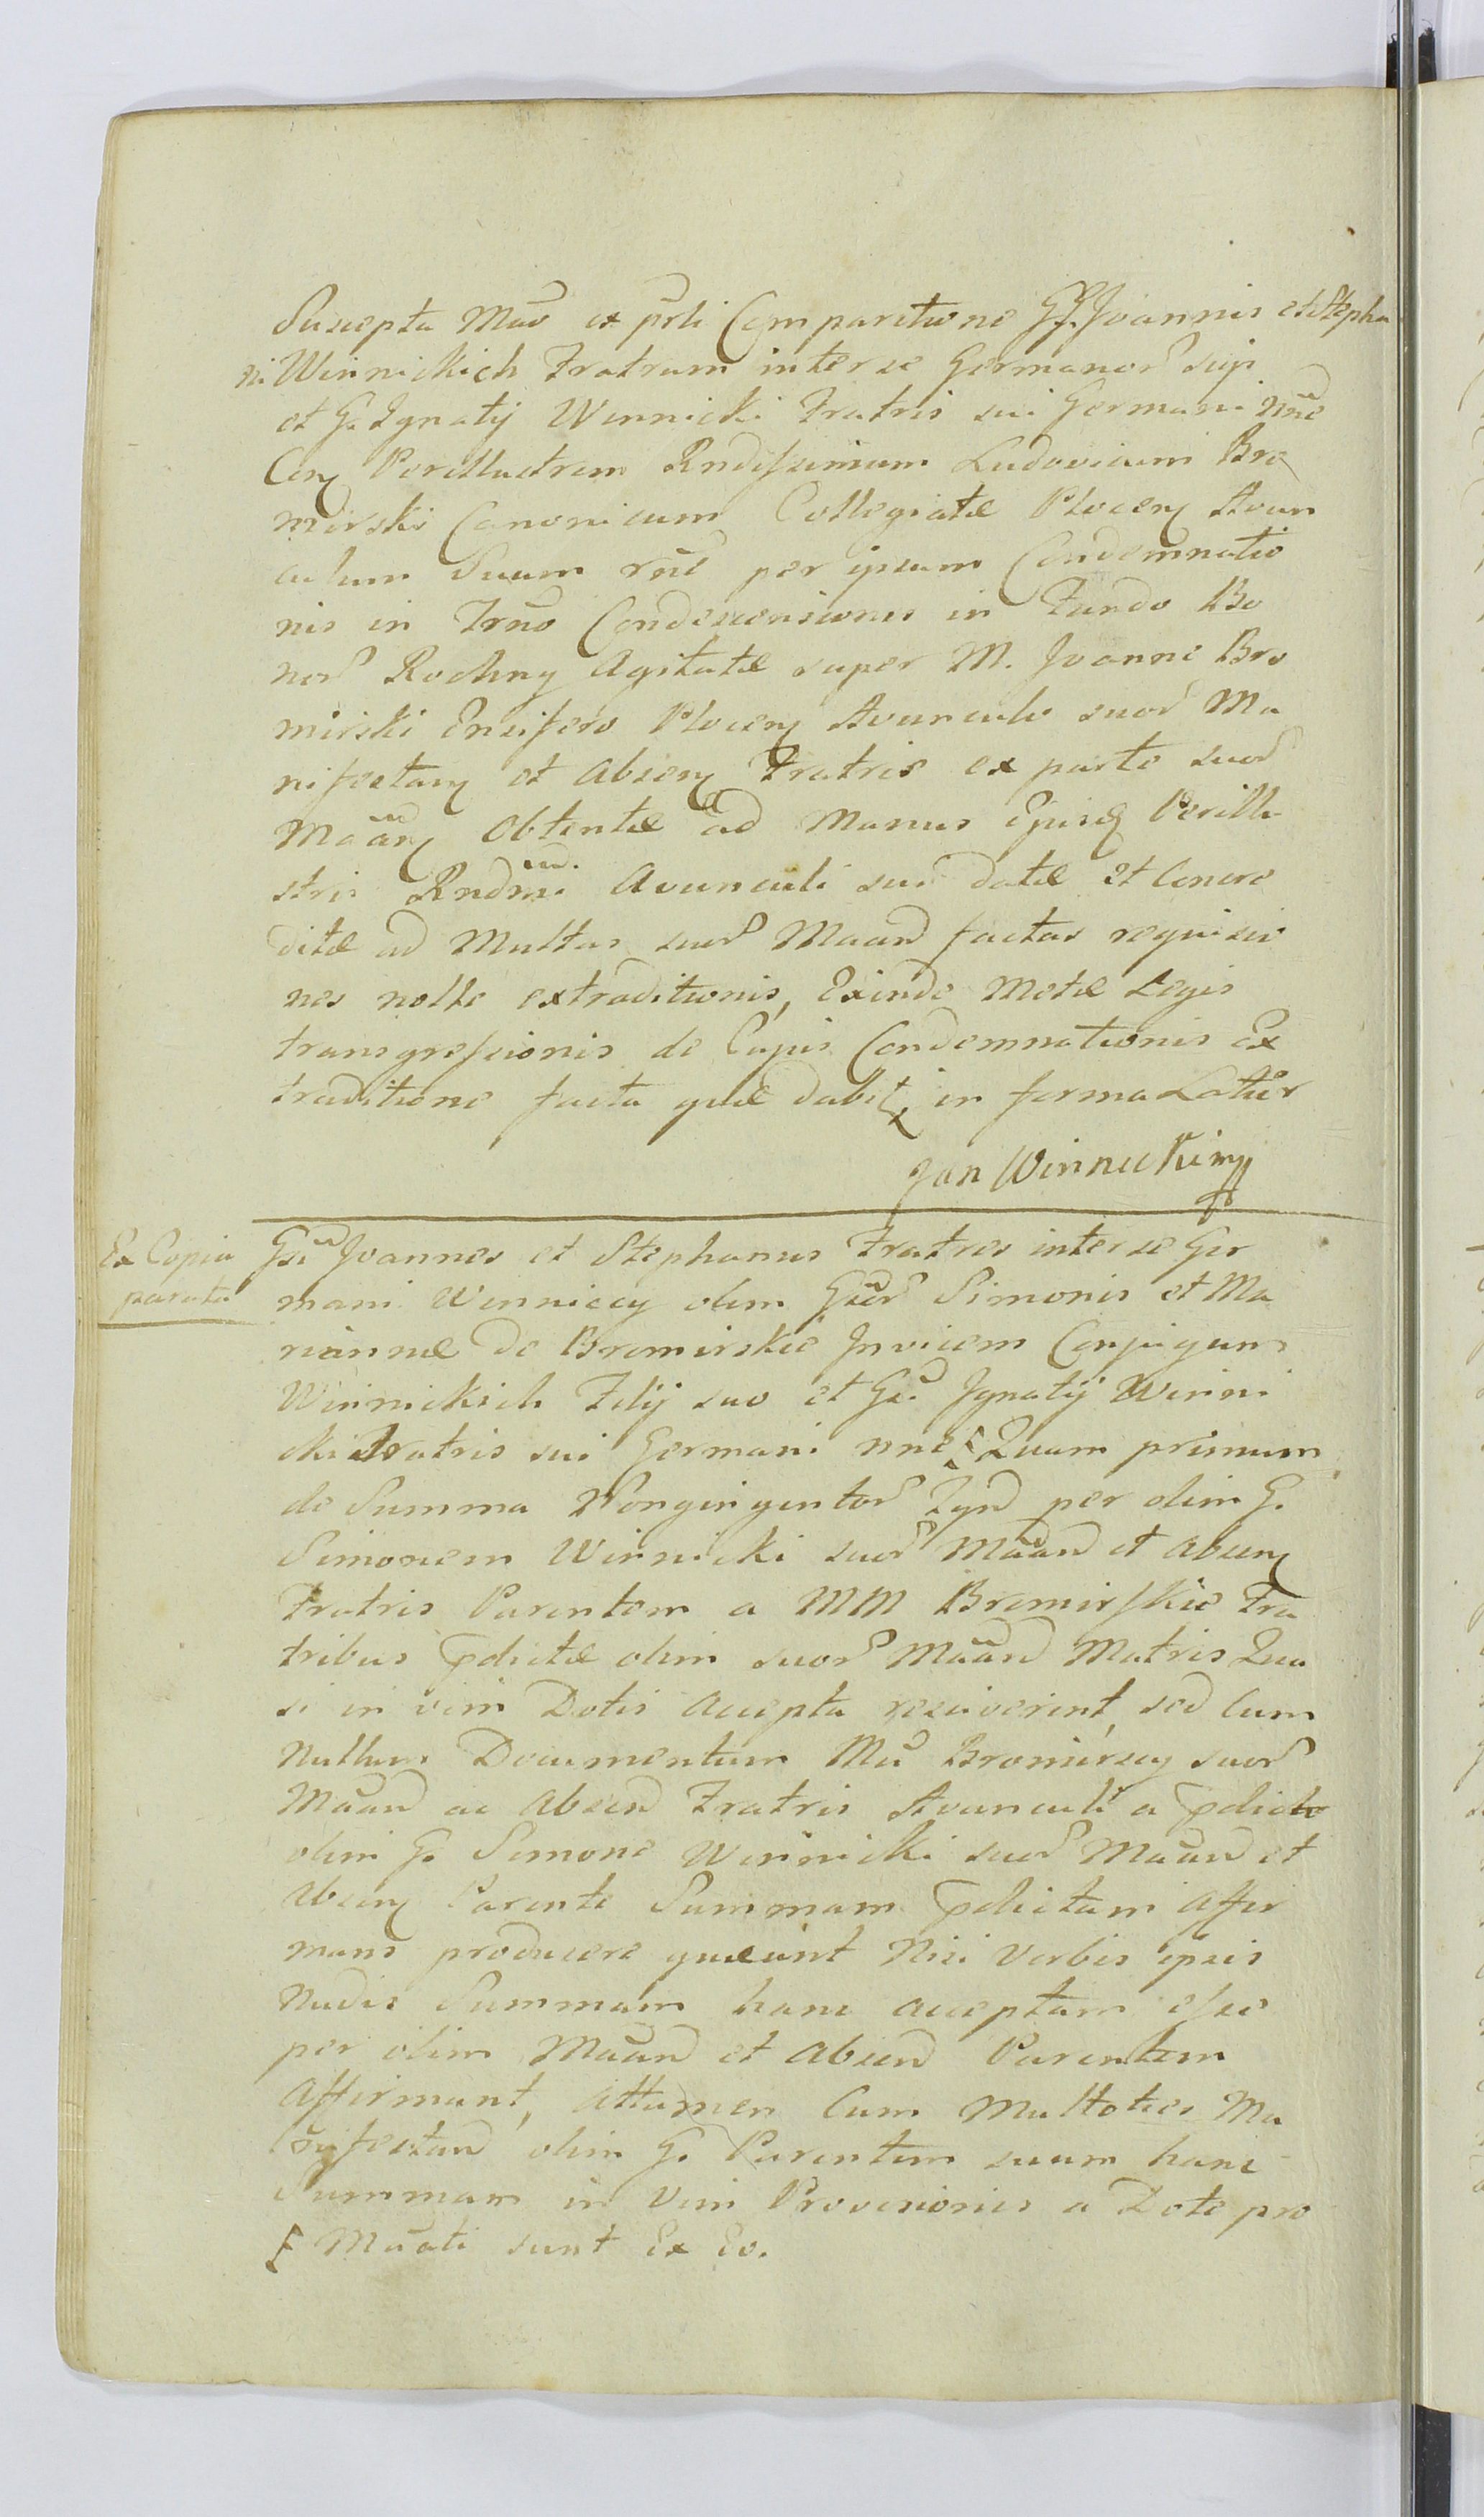 Suscepta Mãõ ex prli Comparitione GG. Joannis et Stepha
ni Winnickich Fratrum inter se Germanor sup
et G. Ignatij Winnicki Fratris sui Germani nne
Perillustrem Rndissimum Ludovicum Bro
mirski Canonicum Collegiatæ Plocen Avun
culum Suum rne per ipsum Condemnatio
nis in Trno Condescensionis in Fundo Bo
nor Rociny Agitatæ super M. Joanne Bro
mirski Ensifero Plocen Avunculo suor Ma
nifestan et Absen Fratris ex parte suor
Mãan Obtentæ ad Manus Ejusd Perillu
stris Rndmi Avunculi sui datæ et Concre
ditæ ad Multas suor Maand factas requisio
nes nolle extraditionis, Exinde Motæ Legis
transgressionis de Cujus Condemnationis Ex
traditione facta quæ dabit, in forma Latior
Jan Winnicki mp
Ex Copia
parata
Gsi Joannes et Stephanus Fratres inter se Ger
mani Winniccy olim Gsor Simonis et Ma
riannæ de Bromirskie Invicem Conjugum
Winnickich Filij suo et Gsi Ignatij Winni
cki Fratris sui Germani nne Quam primum
de Summa Nongingentor per olim G.
Simonem Winnicki suor Mãand et absen
Fratris Parentem a MM Bromirskie Fra
tribus pdictæ olim suor Mãand Matris Qua
si in vim Dotis accepta resciverint, sed Cum
Nullum Documentum Mci Bromirscy suor
Mãand ac Absend Fratris Avunculi a pdicto
olim G. Simone Winnicki suor Mãand et
Absen Parente Summam pdictam Affir
mans producere queunt Nisi Verbis ipsis
Nudis Summam hanc acceptam esse
per olim Mãand et Absend Parentem
Affirmant, Attamen Cum Multoties Ma
nifestand olim G. Parentem suum hanc
Summam in Vim Provisionis a Dote pro
Mãati sunt Ex Eo.